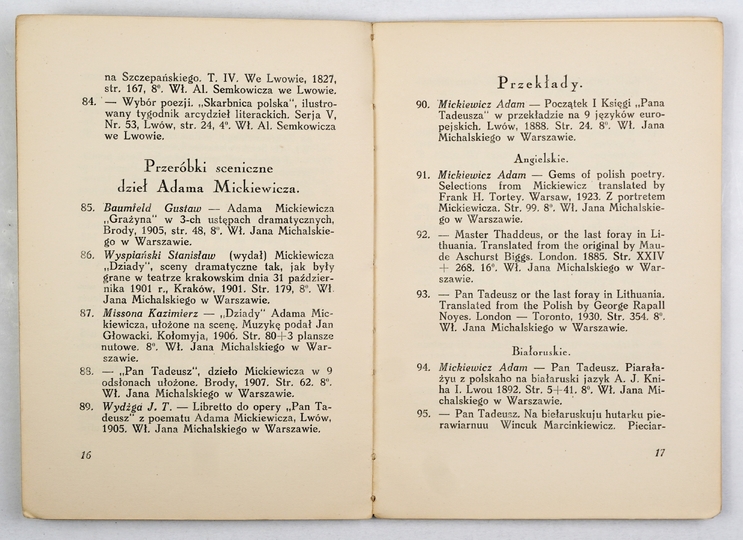 na Szczepańskiego. T. IV. We Lwowie, 1827,
str. 167, 8°. Wł. Al. Semkowicza we Lwowie.
84. — Wybór poezji. „Skarbnica polska", ilustro-
wany tygodnik arcydzieł literackich. Serja V,
Nr. 53, Lwów, str. 24, 4°. Wł. Al. Semkowicza
we Lwowie.
Przeróbki sceniczne
dzieł Adama Mickiewicza.
85. Baumfeld Gustaw — Adama Mickiewicza
„Grażyna" w 3-ch ustępach dramatycznych,
Brody, 1905, str. 48, 8°. Wł. Jana Michalskie-
go w Warszawie.
86. Wyspiański Stanisław (wydał) Mickiewicza
„Dziady", sceny dramatyczne tak, jak były
grane w teatrze krakowskim dnia 31 paździer-
nika 1901 r., Kraków, 1901. Str. 179, 8°. Wł.
Jana Michalskiego w Warszawie.
87. Missona Kazimierz — „Dziady" Adama Mic-
kiewicza, ułożone na scenę. Muzykę podał Jan
Głowacki. Kołomyja, 1906. Str. 80+3 plansze
nutowe. 8°. Wł. Jana Michalskiego w War-
szawie.
88. — „Pan Tadeusz", dzieło Mickiewicza w 9
odsłonach ułożone. Brody, 1907. Str. 62. 8°.
Wł. Jana Michalskiego w Warszawie.
89. Wydżga J. T. — Libretto do opery „Pan Ta-
deusz" z poematu Adama Mickiewicza, Lwów,
1905. Wł. Jana Michalskiego w Warszawie.
16
Przekłady.
90. Mickiewicz Adam — Początek I Księgi „Pana
Tadeusza" w przekładzie na 9 języków euro-
pejskich. Lwów, 1888. Str. 24. 8°. Wł. Jana
Michalskiego w Warszawie.
Angielskie.
91. Mickiewicz Adam — Gems of polish poetry.
Selections from Mickiewicz translated by
Frank H. Tortey. Warsaw, 1923. Z portretem
Mickiewicza. Str. 99. 8°. Wł. Jana Michalskie-
go w Warszawie.
92. — Master Thaddeus, or the last foray in Li-
thuania. Translated from the original by Mau-
de Aschurst Biggs. London. 1885. Str. XXIV
+ 268. 16°. Wł. Jana Michalskiego w War-
szawie.
93. — Pan Tadeusz or the last foray in Lithuania.
Translated from the Polish by George Rapall
Noyes. London — Toronto, 1930. Str. 354. 8°.
Wł. Jana Michalskiego w Warszawie.
Białoruskie.
94. Mickiewicz Adam — Pan Tadeusz. Piarała-
żyu z polskaho na białaruski jazyk A. J. Kni-
ha I. Lwou 1892. Str. 5+41. 8°. Wł. Jana Mi-
chalskiego w Warszawie.
95. — Pan Tadeusz. Na biełaruskuju hutarku pie-
rawiarnuu Wincuk Marcinkiewicz. Pieciar-
17